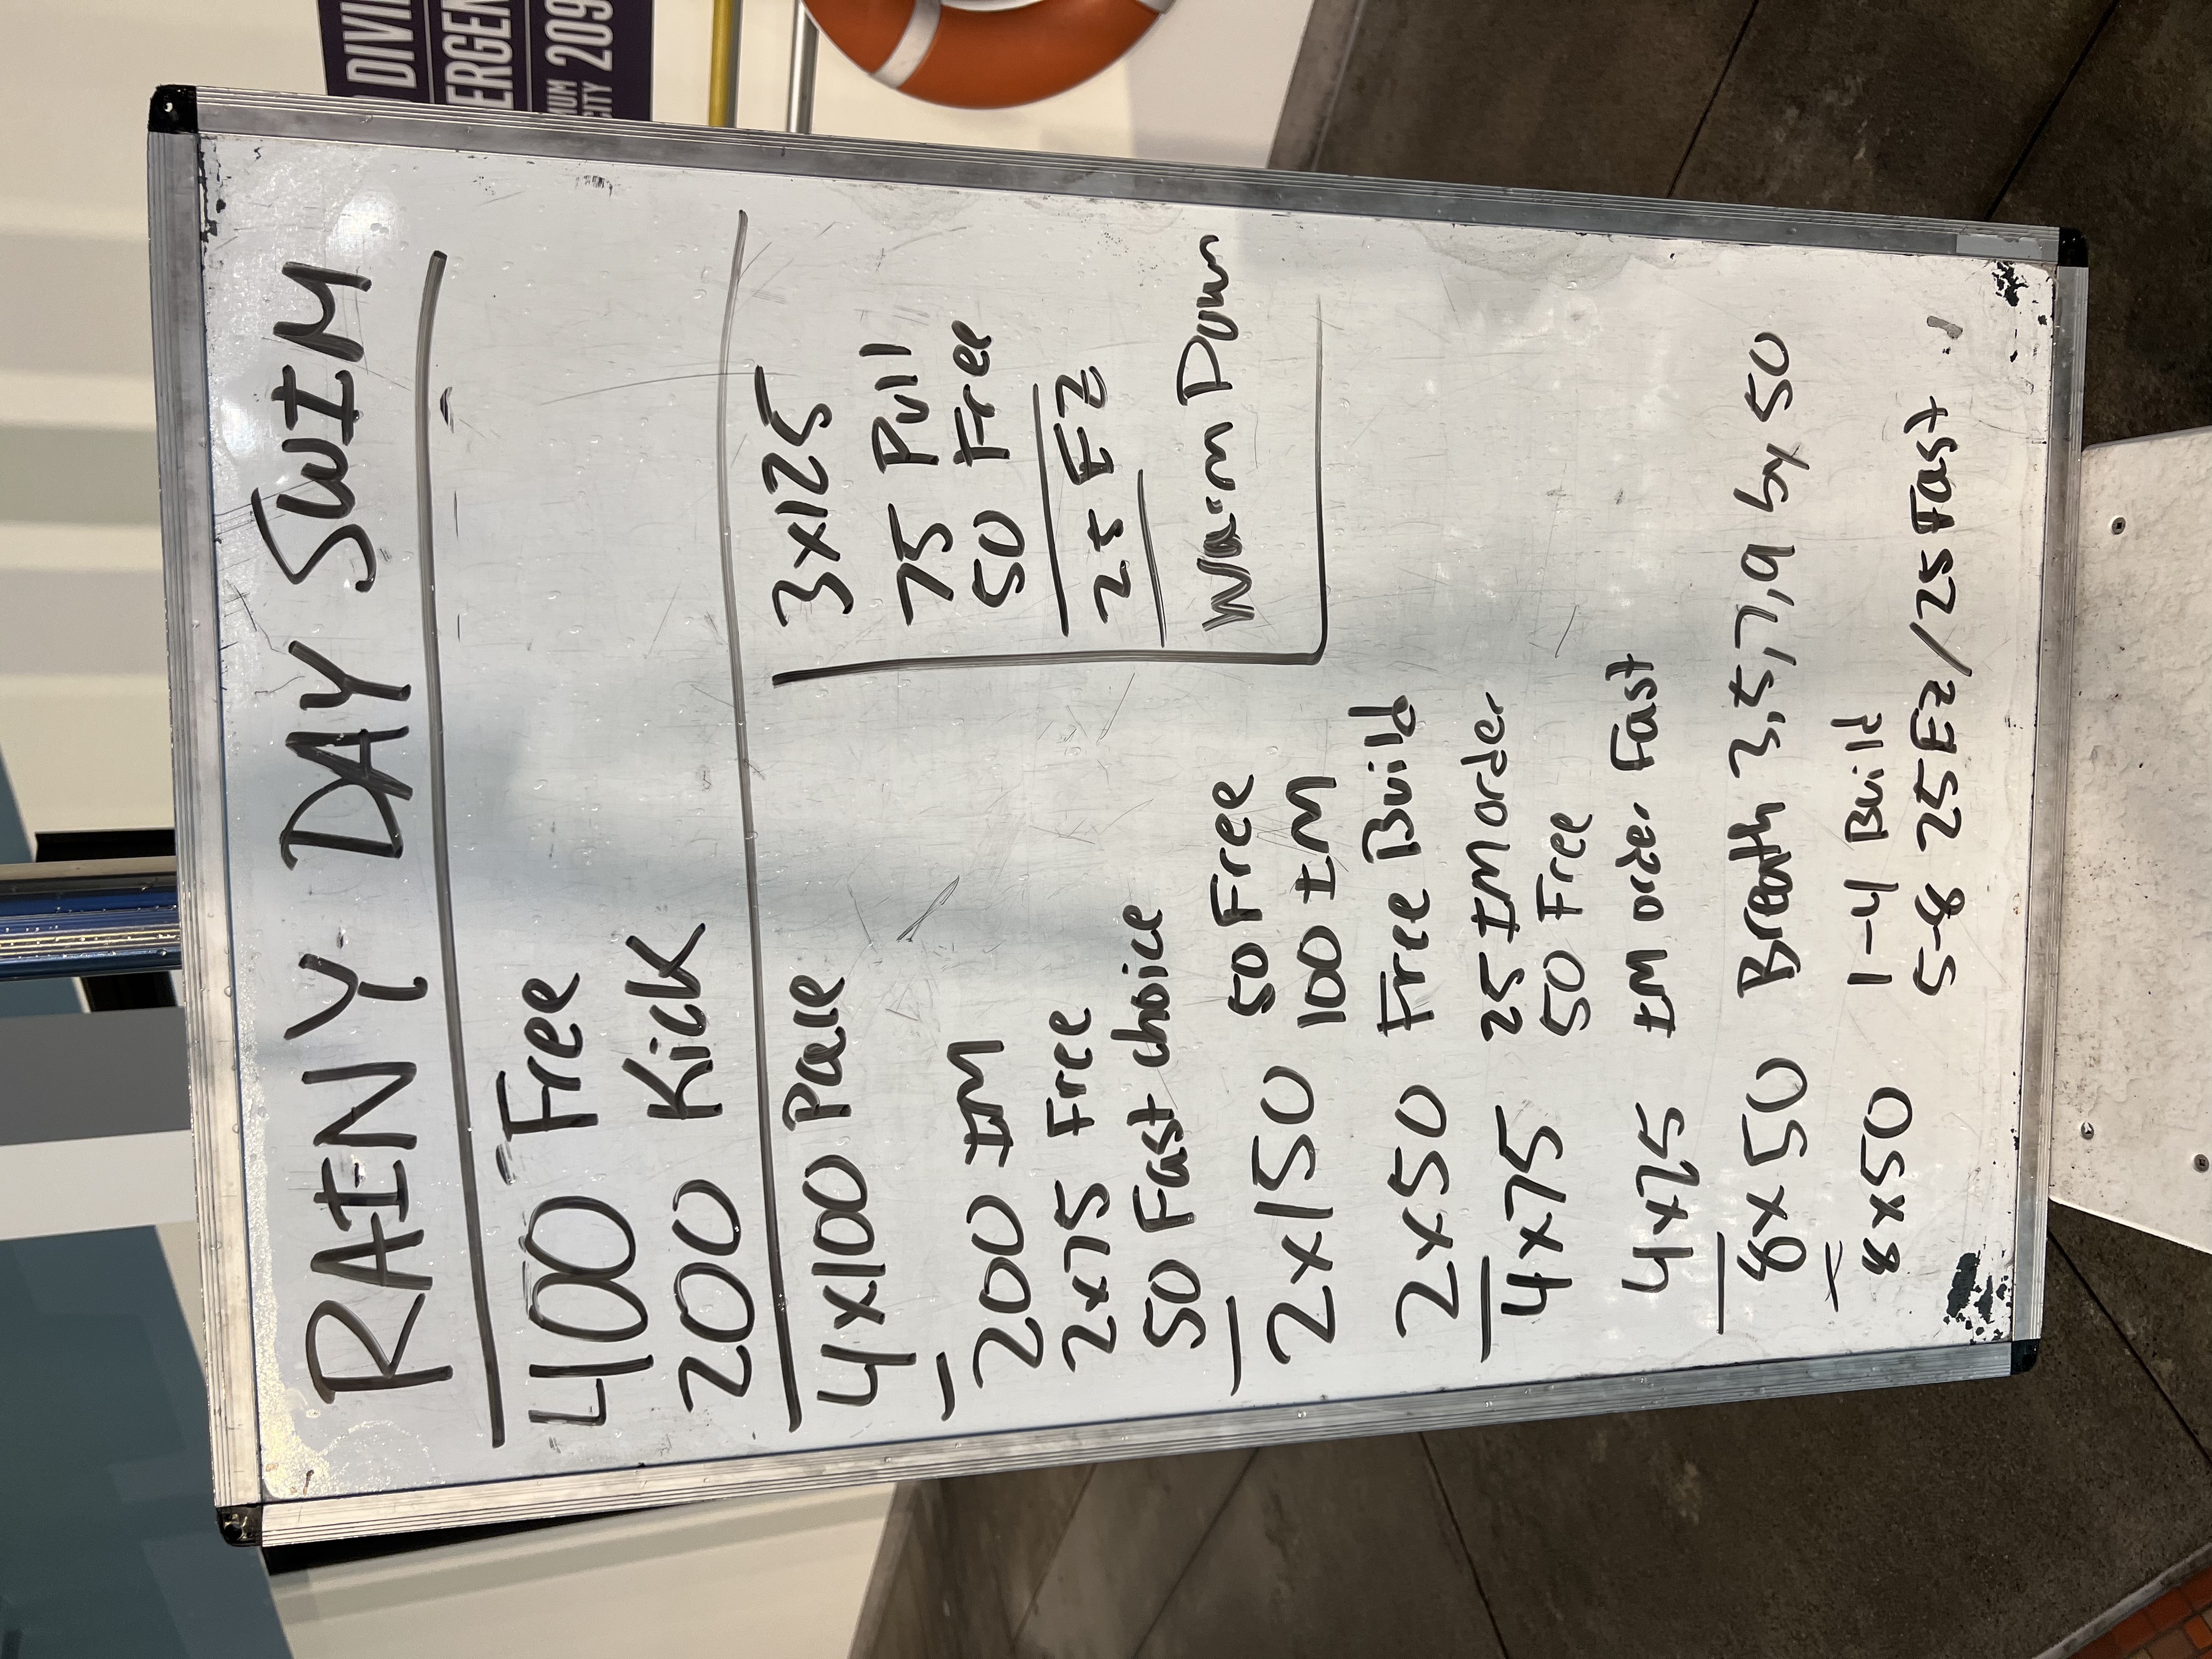 RAINY DAY SWIM
400 Free
200 Kick
4x100 Pace
200 IM
2x75 Free
50 Fast choice
2x150 50 Free
100 IM
2x50 Free Build
4x75 25 IM order
50 Free
4x25 IM order Fast
8x50 Breath 3,5,7,9 by 50
8x50 1-4 Build
5-8 25 EZ/25 Fast
3x125
75 Pull
50 Free
25 EZ
Warm Down
DIVIN
ERGEN
IUM
CITY 209